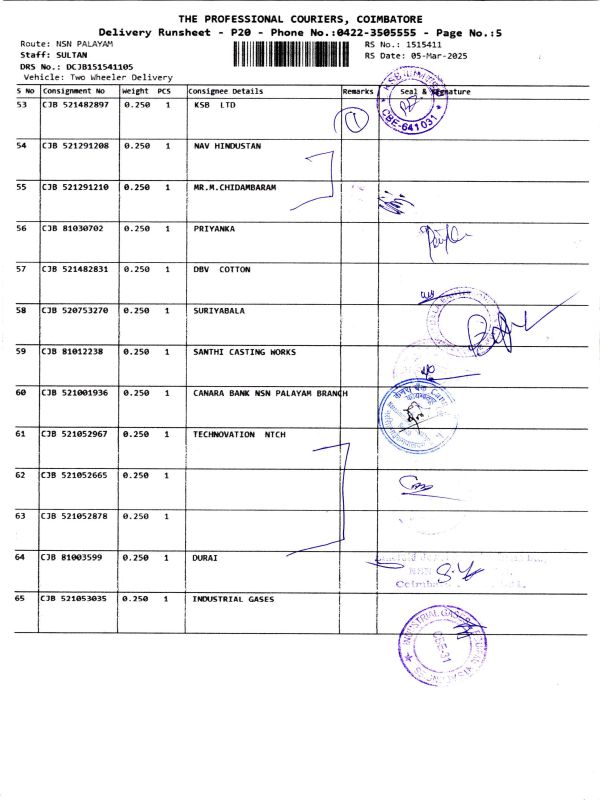 THE PROFESSIONAL COURIERS, COIMBATORE
Delivery Runsheet - P20 - Phone No.:0422-3505555 - Page No.:5
Route: NSN PALAYAM
RS No.: 1515411
Staff: SULTAN
RS Date: 05-Mar-2025
DRS No.: DCJB151541105
Vehicle: Two Wheeler Delivery
S No Consignment No Weight PCS Consignee Details Remarks Seal & Signature
53 CJB 521482897 0.250 1 KSB LTD
1
KSB LIMITED
CBE-641031
54 CJB 521291208 0.250 1 NAV HINDUSTAN
55 CJB 521291210 0.250 1 MR.M.CHIDAMBARAM
56 CJB 81030702 0.250 1 PRIYANKA
57 CJB 521482831 0.250 1 DBV COTTON
58 CJB 520753270 0.250 1 SURIYABALA
59 CJB 81012238 0.250 1 SANTHI CASTING WORKS
60 CJB 521001936 0.250 1 CANARA BANK NSN PALAYAM BRANCH
61 CJB 521052967 0.250 1 TECHNOVATION NTCH
62 CJB 521052665 0.250 1
63 CJB 521052878 0.250 1
64 CJB 81003599 0.250 1 DURAI
65 CJB 521053035 0.250 1 INDUSTRIAL GASES
INDUSTRIAL GASES
CBE-31